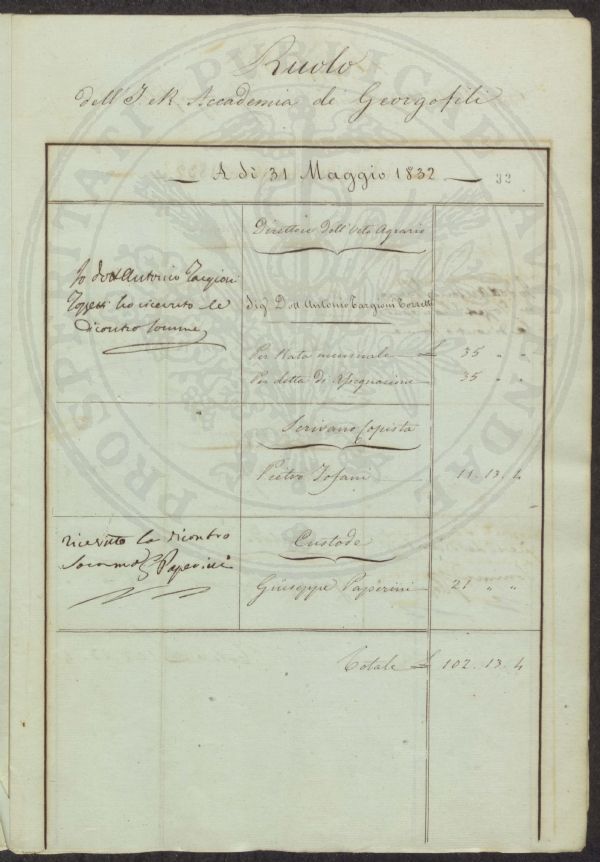 Ruolo
dell'I. e R. Accademia de' Georgofili
A dì 31 Maggio 1832
32
Direttore dell'Orto Agrario
Io dott Antonio Targioni
Tozzetti ho ricevuto le
dicontro somme
Sigr. Dott. Antonio Targioni Tozzetti
Per Rata mensuale £ 35 " "
Per detta di Assegnazione 35 " "
Scrivano Copista
Pietro Tofani 11. 13. 4
ricevuto la dicontro
Somma G Paperini
Custode
Giuseppe Paperini 21 " "
Totale £ 102. 13. 4
PROSPERITATI PUBLICAE AUGENDAE